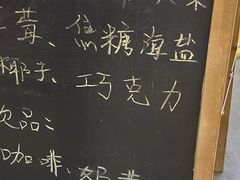 莓、焦糖海盐
椰子、巧克力
饮品：
咖啡、奶黄